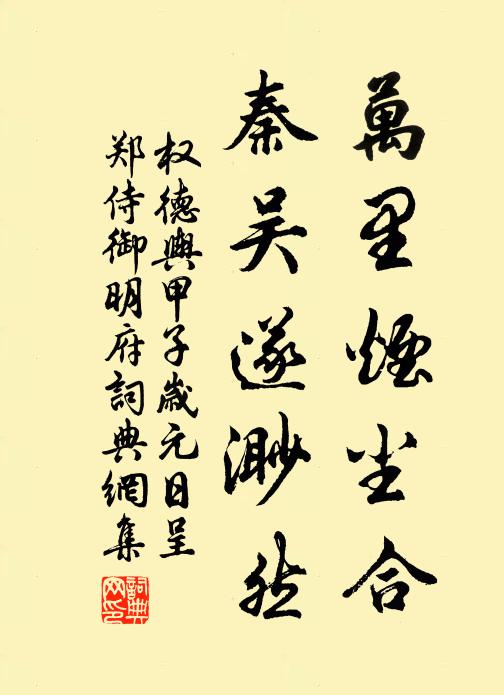 萬里煙尘合
秦吴遂渺然
权德舆甲子歲元日呈
郑侍御明府詞典網集